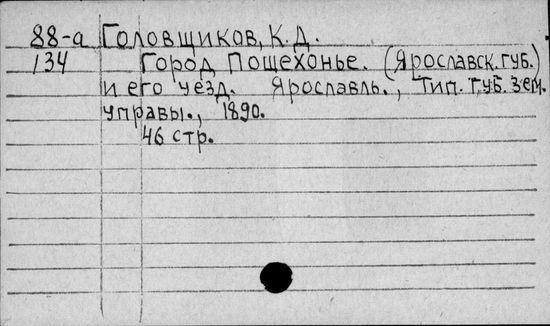 88-а Головщиков, К.Д.
134 Город Пошехонье. (Ярославск.губ.)
и его уезд. Ярославль., Тип. Губ. Зем.
управы., 1890.
46 стр.